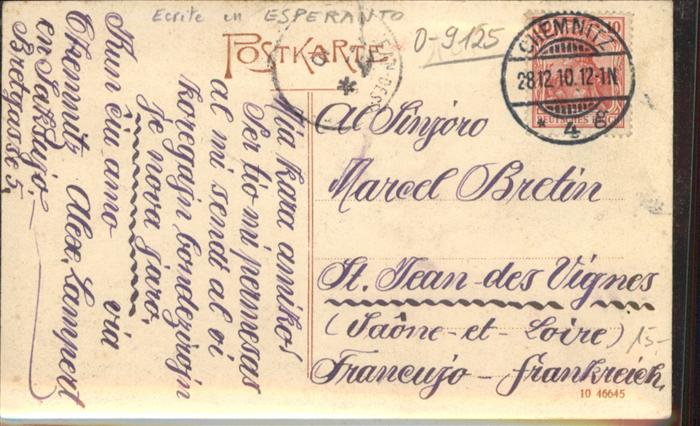 Ecrite en ESPERANTO
POSTKARTE
0-9125
CHEMNITZ
28.12.10.12-1N
* 4 g
10
DEUTSCHES REICH
Mia kara amiko!
Per tio mi permesas
al mi sendi al vi
koregajn bondezirojn
je nova jaro.
Kun ĉiu amo via
Chemnitz Alex. Lampert
en Saksujo.
Bretgasse 5.
Al Sinjoro
Marcel Bretin
St. Jean des Vignes
(Saône-et-Loire)
Francujo – Frankreich.
15.-
10 46645